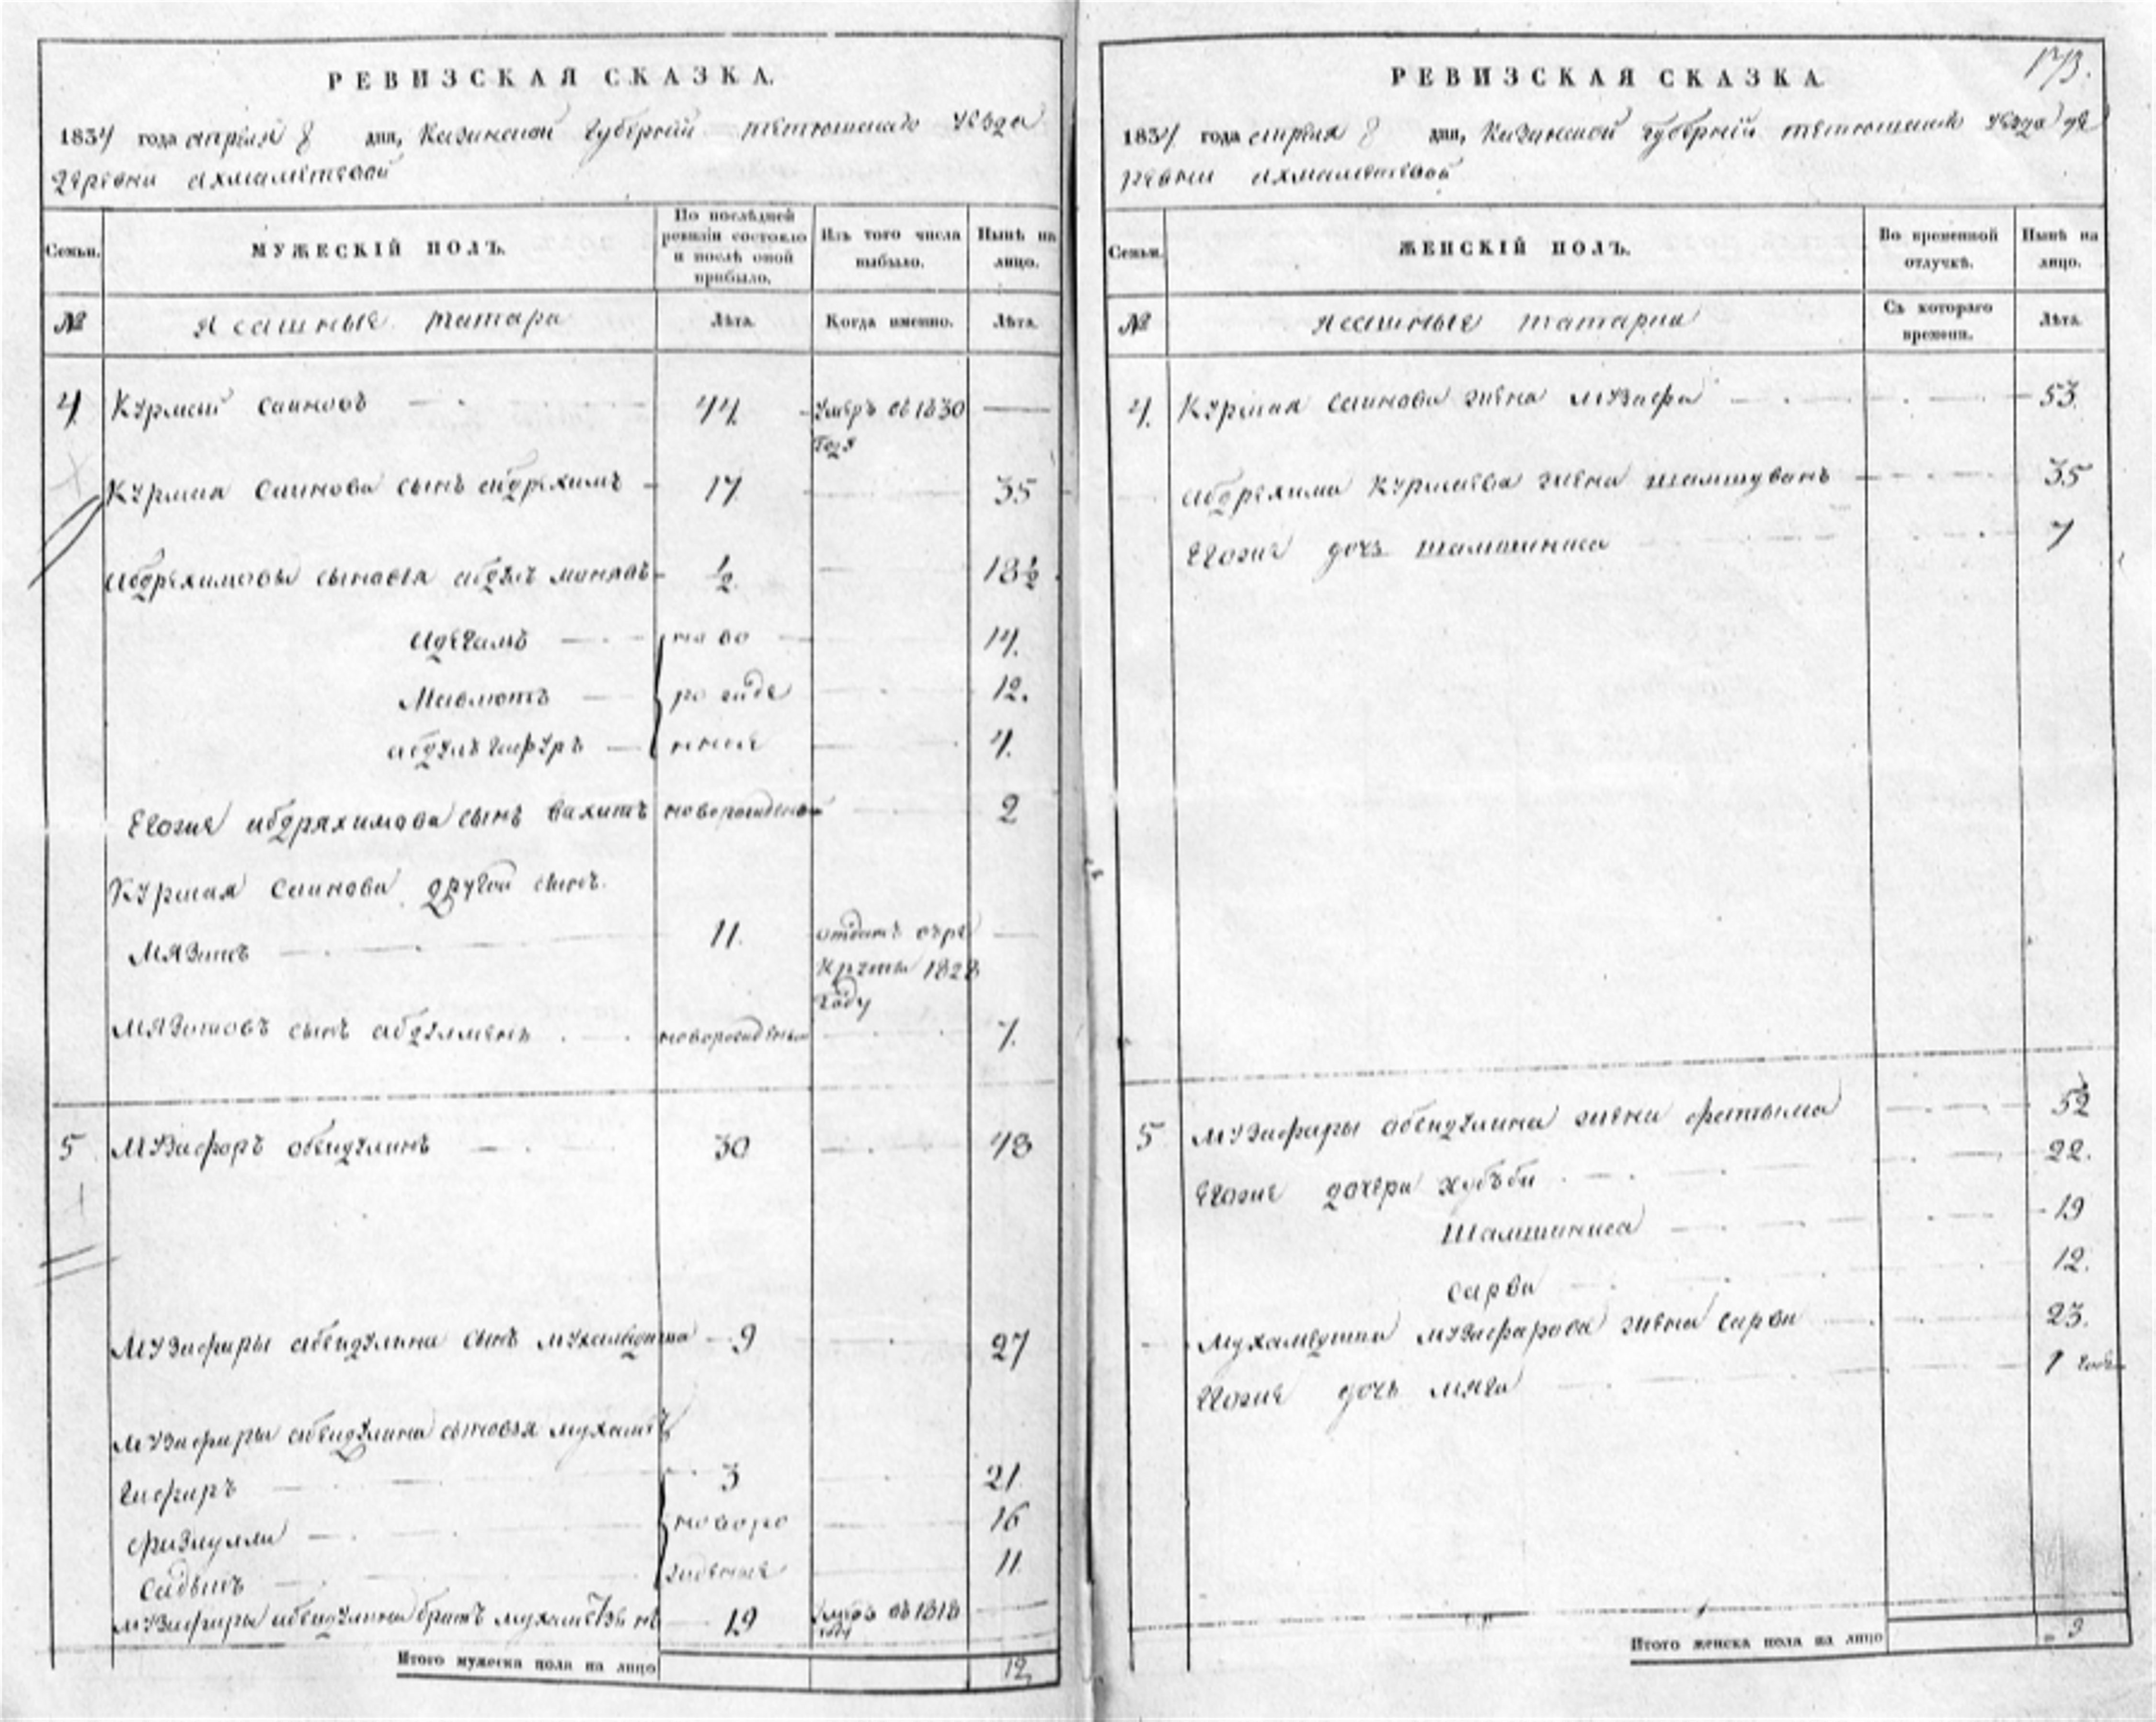 РЕВИЗСКАЯ СКАЗКА.
1834 года апреля 8 дня, Казанской губернии тетюшскаго уезда
деревни ахмаметевой
Семьи.
МУЖЕСКІЙ ПОЛЪ.
По послѣдней
ревизіи состояло
и послѣ оной
прибыло.
Изъ того числа
выбыло.
Нынѣ на
лицо.
№
Ясашные татара
Лѣта.
Когда именно.
Лѣта.
4 Курмай саиновъ 44. умеръ въ 1830
года
Курмая саинова сынъ абдрехимъ 17 35
абдрехимовы сыновья абдулъ манявъ ½ 18½
адгамъ ново 14.
Мавлютъ рожде 12.
абдулъ гафуръ нныя 4.
Егоже абдряхимова сынъ вахитъ новорожденой 2
Курмая саинова другой сынъ.
мязитъ 11. отданъ въре
круты 1828
году
мязитовъ сынъ абдулменъ новорожденой 7.
5 музафоръ обейдулинъ 30 48
музафары абейдулина сынъ мухамедша 9 27
музафары абейдулина сыновья мухамѣ
гафаръ 3 21.
физиулла новоро 16
садытъ жденыя 11
музафары абейдулина братъ 19 умеръ въ 1818
году
Итого мужеска пола на лицо 12,
173.
РЕВИЗСКАЯ СКАЗКА.
1834 года апреля 8 дня, Казанской губернии тетюшскаго уезда де
ревни ахмаметевой
Семьи.
ЖЕНСКІЙ ПОЛЪ.
Во временной
отлучкѣ.
Нынѣ на
лицо.
№
Ясашные татарки
Съ котораго
времени.
Лѣта.
4. Курмая саинова жена музафа 53.
абдрехима курмаева жена шамшуванъ 35
Егоже дочь шамшиниса 7
5 музафары абейдулина жена фатыма 52
Егоже дочери хубъби 22.
Шамшиниса 19
сарва 12.
мухамедши музафарова жена сарва 23.
Егоже дочь мяга 1 годъ
Итого женска пола на лицо 9